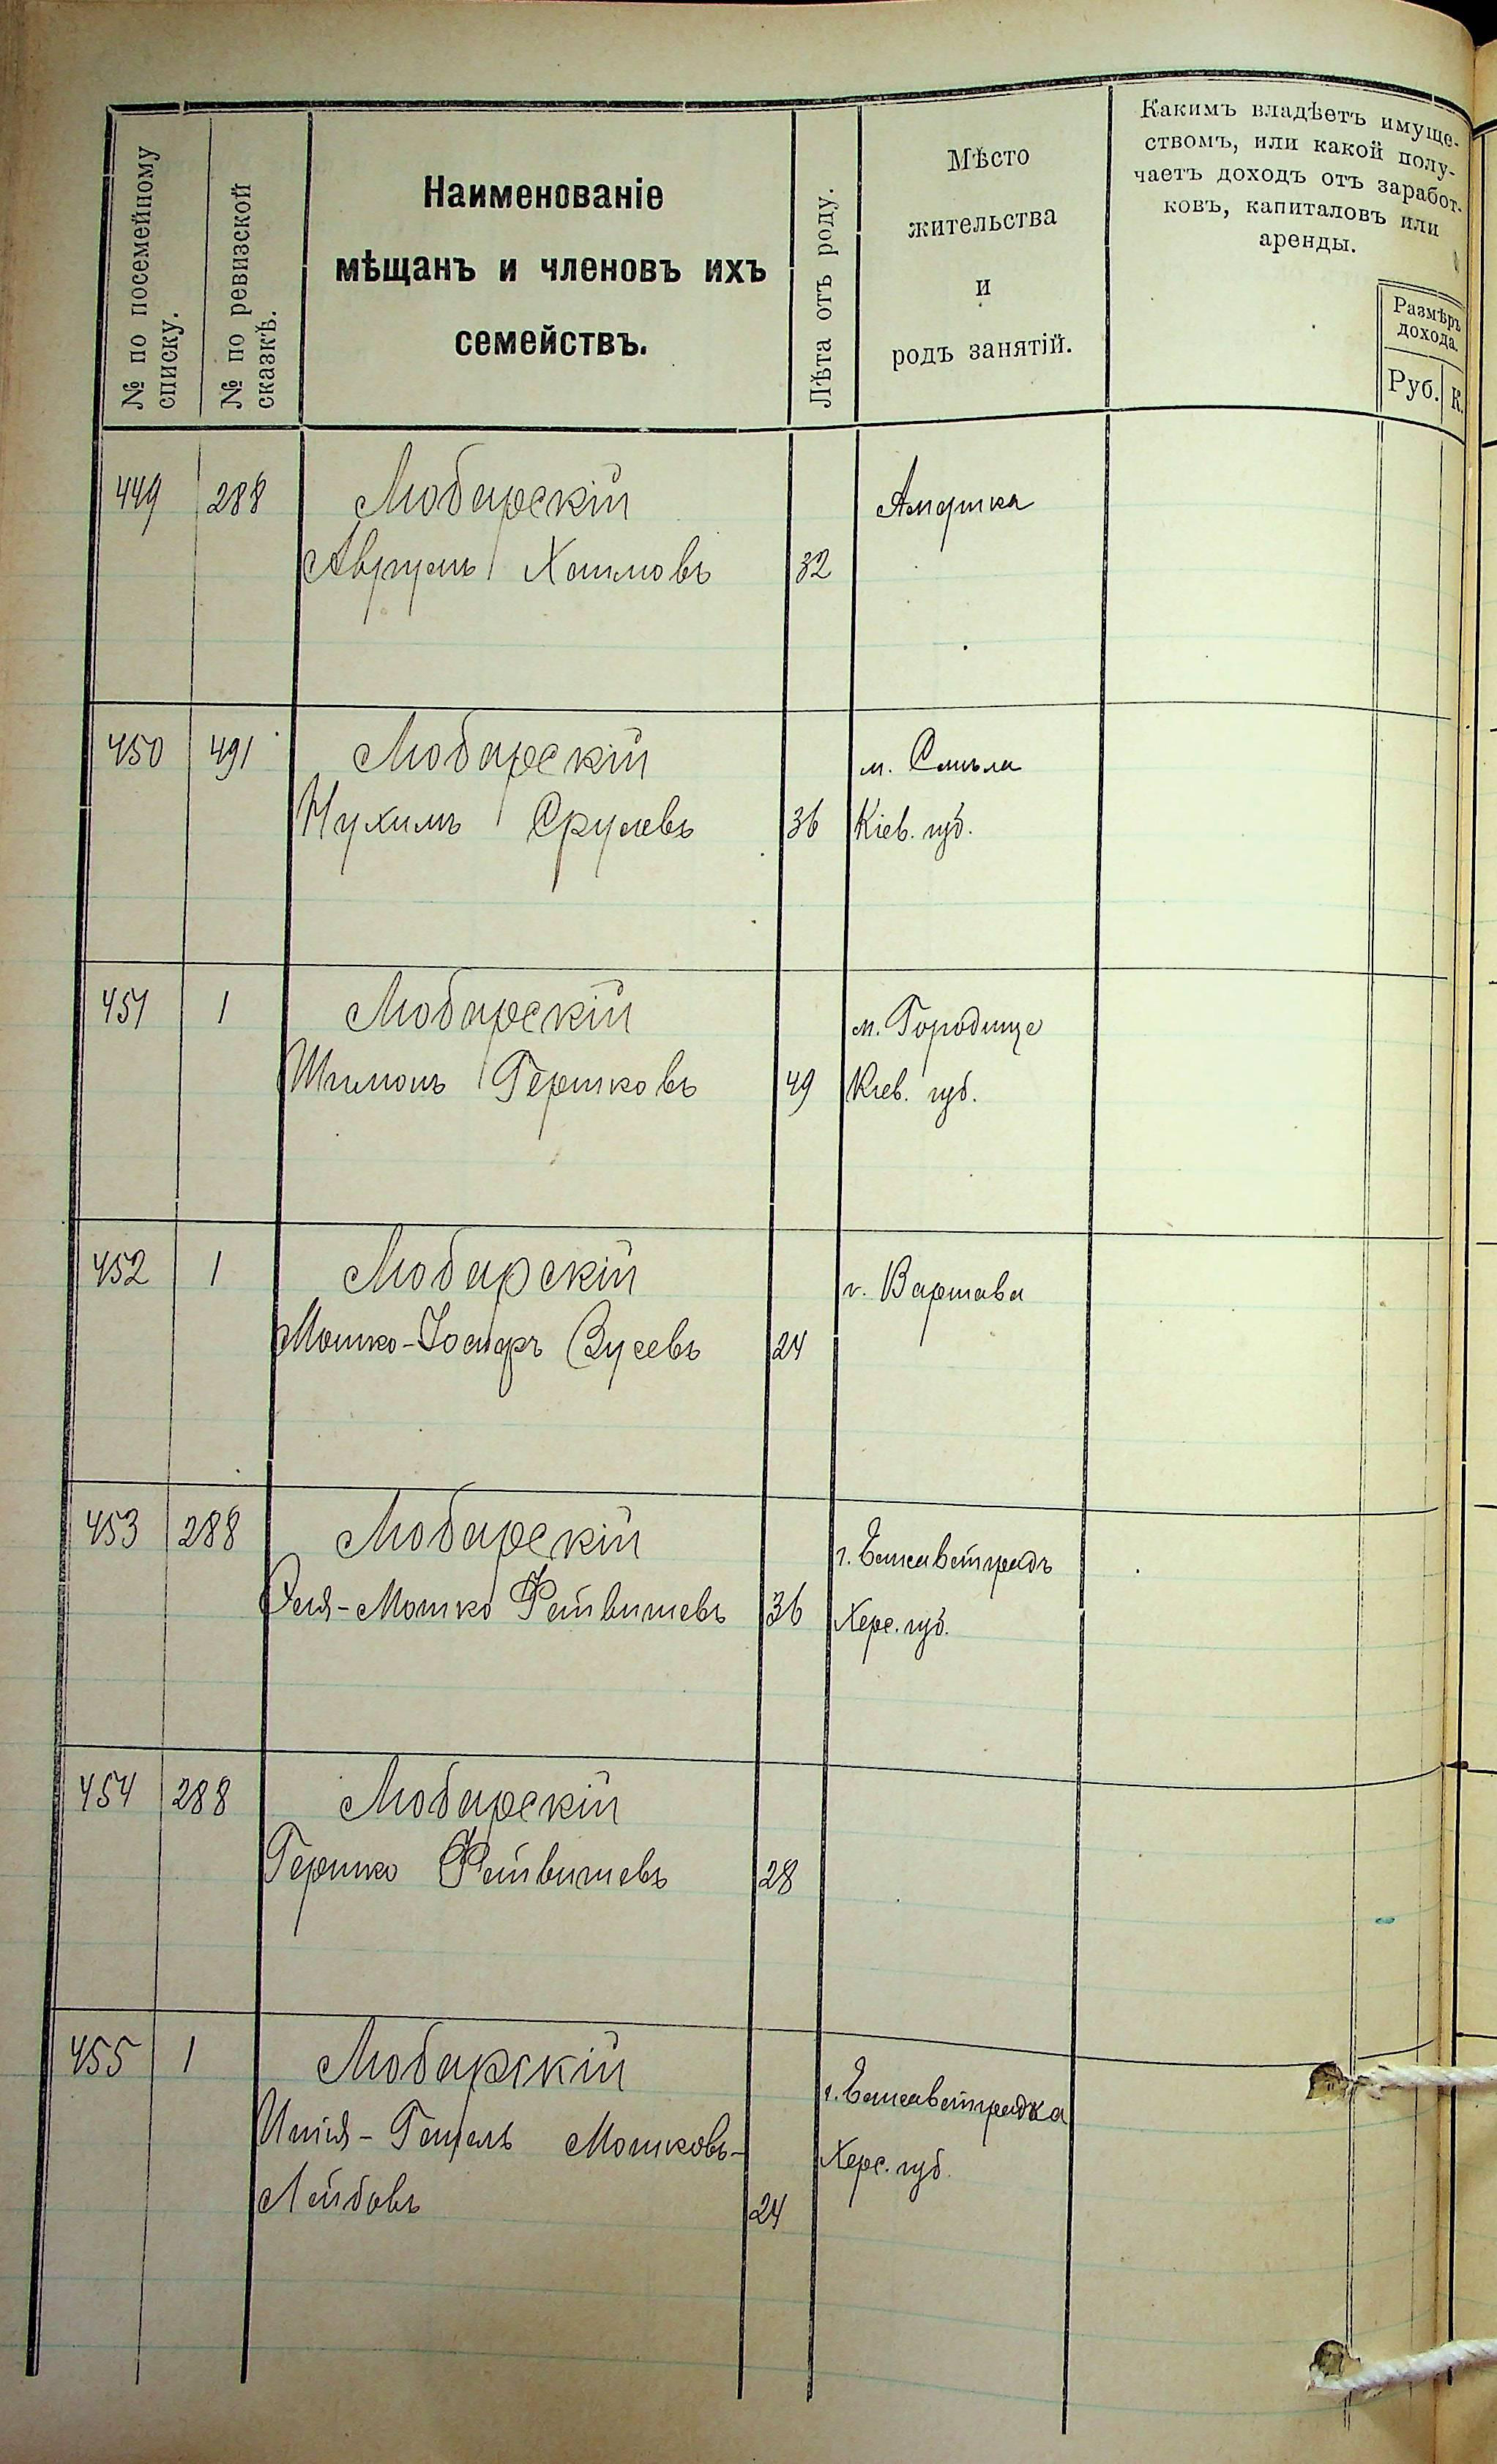 № по посемейному
списку.
№ по ревизской
сказкѣ.
Наименованіе
мѣщанъ и членовъ ихъ
семействъ.
Лѣта отъ роду.
Мѣсто
жительства
и
родъ занятій.
Какимъ владѣетъ имуще-
ствомъ, или какой полу-
чаетъ доходъ отъ заработ-
ковъ, капиталовъ или
аренды.
Размѣръ
дохода.
Руб. К.
449 288 Любарскій Америка
Аврумъ Хаимовъ 32
450 491 Любарскій м. Смѣла
Нухимъ Срулевъ 36 Кіев. губ.
451 1 Любарскій м. Городище
Шимонъ Гершковъ 49 Кіев. губ.
452 1 Любарскій г. Варшава
Мошко-Іосифъ Зусевъ 24
453 288 Любарскій г. Елисаветградъ
Мошко Файвишевъ 36 Херс. губ.
454 288 Любарскій
Гершко Файвишевъ 28
455 1 Любарскій г. Елисаветградка
Мошковъ- Херс. губ.
Лейбовъ 24